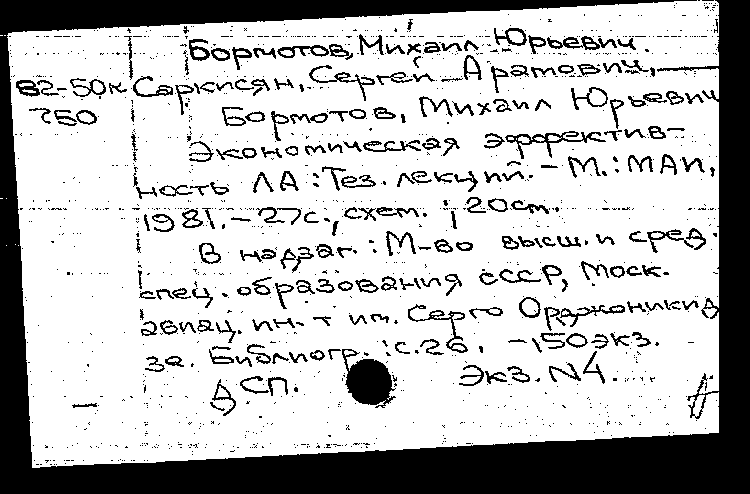 Бормотов, Михаил Юрьевич.
82-50к Саркисян, Сергей Арамович, —
750 Бормотов, Михаил Юрьевич
Экономическая эффектив-
ность ЛА : Тез. лекций. – М. : МАИ,
1981. – 27с., схем. ; 20см.
В надзаг. : М-во высш. и сред.
спец. образования СССР, Моск.
авиац. ин-т им. Серго Орджоникид
зе. Библиогр. : с.26. – 150экз.
ДСП. Экз. N4.